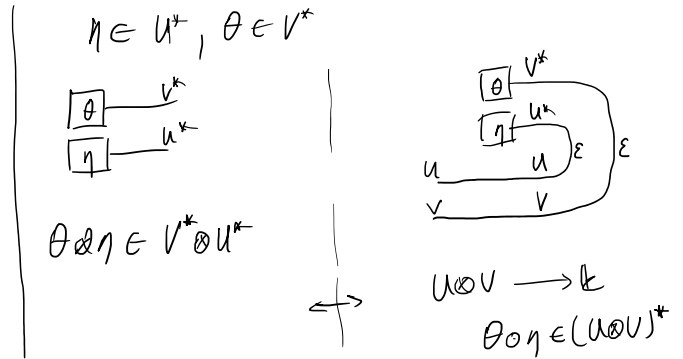 η ∈ U*, θ ∈ V*
θ V*
η U*
θ⊗η ∈ V*⊗U*
θ V*
η U*
U U ε ε
V V
U⊗V → k
θ∘η ∈ (U⊗V)*